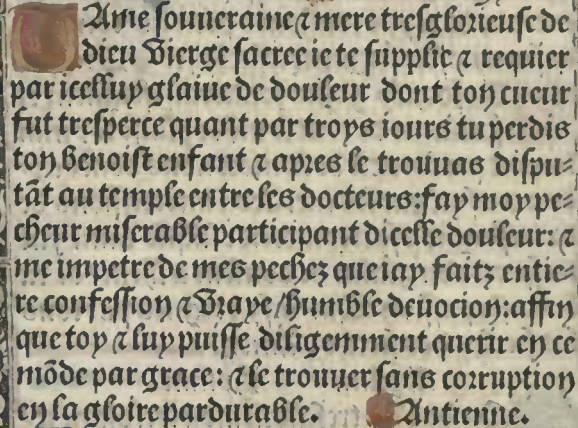 Ame souueraine ⁊ mere tresglorieuse de
dieu Vierge sacree ie te supplie ⁊ requier
par icelluy glaiue de douleur dont ton cueur
fut tresperce quant par troys iours tu perdis
ton benoist enfant ⁊ apres le trouuas dispu⸗
tãt au temple entre les docteurs: fay moy pe⸗
cheur miserable participant dicelle douleur: ⁊
me impetre de mes pechez que iay faitz entie⸗
re confession ⁊ Vraye / humble deuocion: affin
que toy ⁊ luy puisse diligemment querir en ce
mõde par grace: ⁊ le trouuer sans corruption
en la gloire pardurable. Antienne.